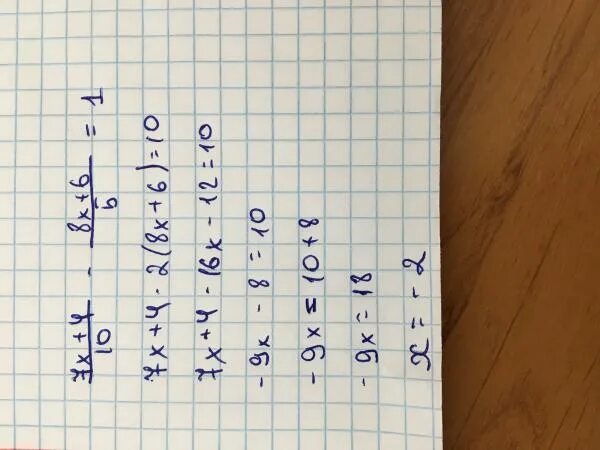 7x+4/10 - 8x+6/5 = 1
7x+4-2(8x+6)=10
7x+4-16x-12=10
-9x-8=10
-9x=10+8
-9x=18
x=-2